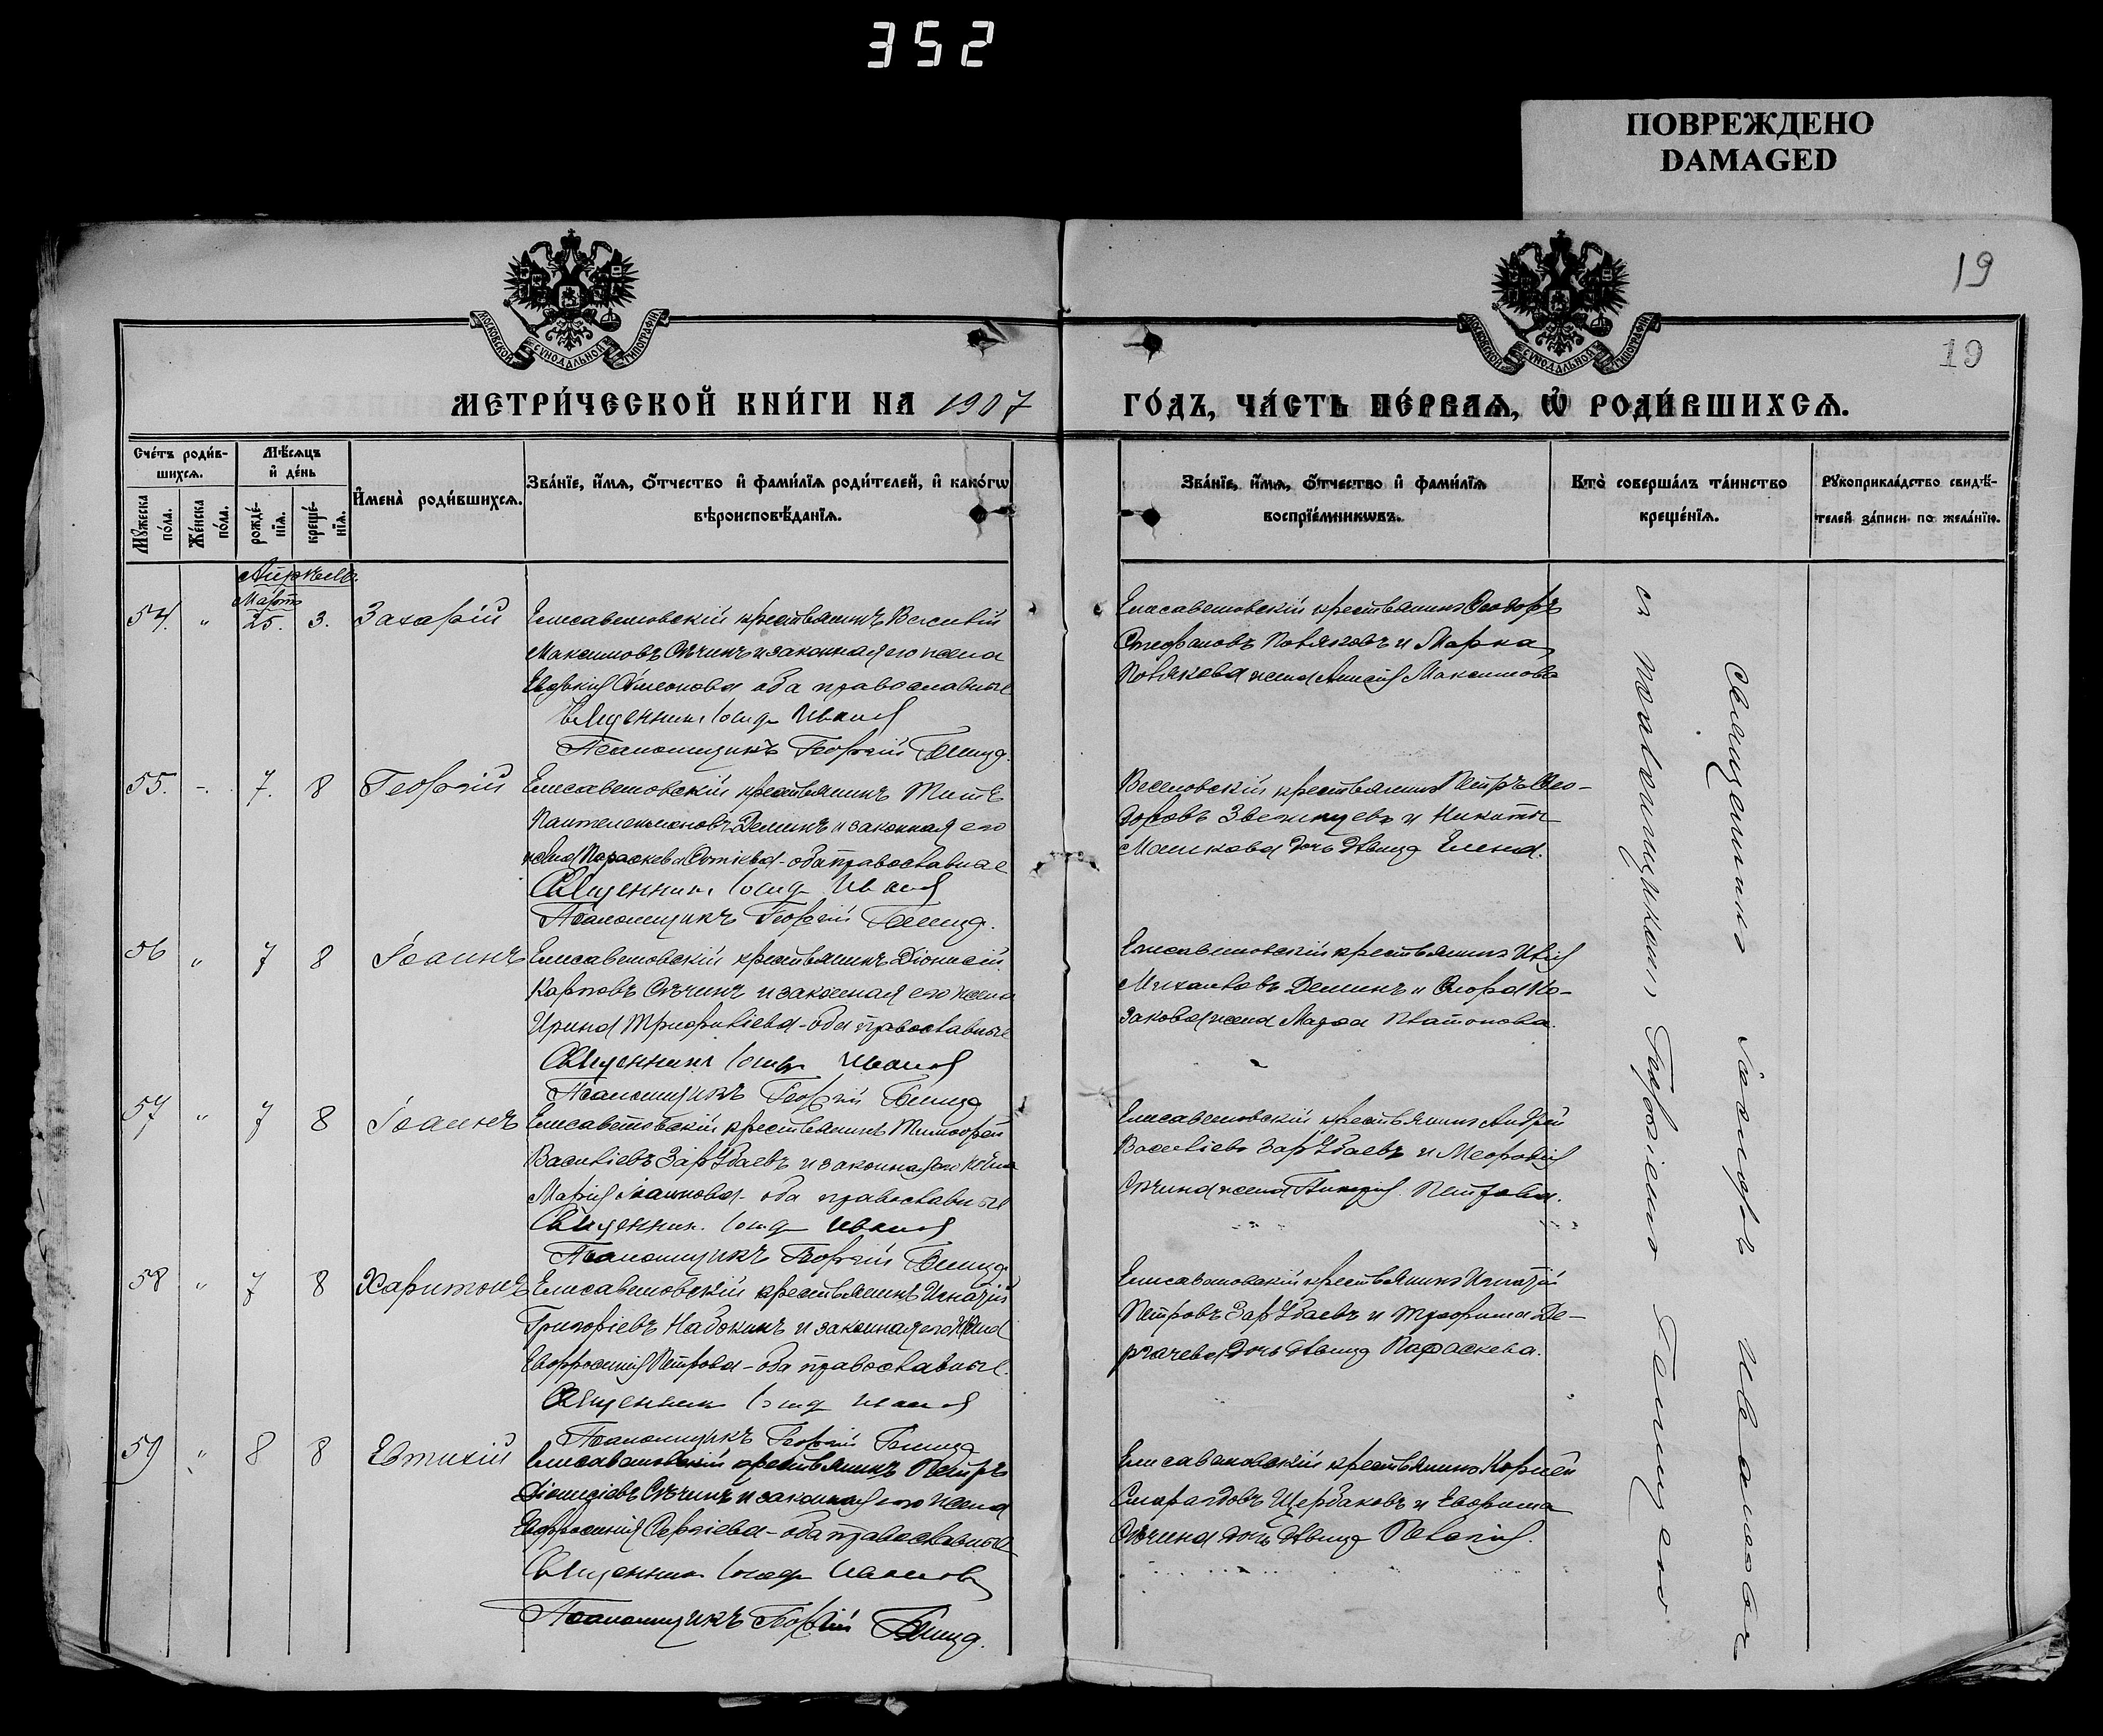 352
ПОВРЕЖДЕНО
DAMAGED
19
19
МОСКОВСКОЙ СѴНОДАЛЬНОЙ ТИПОГРАФІИ
МОСКОВСКОЙ СѴНОДАЛЬНОЙ ТИПОГРАФІИ
МЕТРИ́ЧЕСКОЙ КНИ́ГИ НА 1907
ГО́ДЪ, ЧА́СТЬ ПЕ́РВАѦ, Ѡ҆ РОДИ́ВШИХСѦ.
Сче́тъ роди́в-
шихсѧ.
Мꙋжеска по́ла.
Же́нска по́ла.
Мѣ́сѧцъ
и҆ де́нь
рожде́-
нїѧ.
креще́-
нїѧ.
И҆мена̀ роди́вшихсѧ.
Зва́нїе, и҆́мѧ, ѻ҆́тчество и҆ фами́лїѧ роди́телей, и҆ како́гѡ
вѣроисповѣ́данїѧ.
Зва́нїе, и҆́мѧ, ѻ҆́тчество и҆ фами́лїѧ
воспрїе́мникѡвъ.
Кто̀ соверша́лъ та́инство
креще́нїѧ.
Рꙋкоприкла́дство свидѣ́-
телей за́писи по жела́нїю.
Апрѣль.
Мартъ
54. " 25. 3. Захарій Елисаветовскій крестьянинъ Василій
Максимовъ Сѣчинъ и законная его жена
Евдокія Симеонова оба православные
Священникъ Іосифъ Ивановъ
Псаломщикъ Георгій
Елисаветовскій крестьянинъ Ѳеодоръ
Стефановъ Поляковъ и Марка
Полякова жена Анисія Максимова
55. " 7. 8 Георгій Елисаветовскій крестьянинъ Титъ
Пантелеимоновъ Деминъ и законная его
жена Параскева - оба православные
Священникъ Іосифъ Ивановъ
Псаломщикъ Георгій
Веселовскій крестьянинъ Петръ Ѳео-
доровъ Звегинцевъ и Никиты
Машкова дочь дѣвица Елена.
56 " 7 8 Іоаннъ Елисаветовскій крестьянинъ Діонисій
Карповъ Сѣчинъ и законная его жена
Ирина Трифиліева - оба православные
Священникъ Іосифъ Ивановъ
Псаломщикъ Георгій
Елисаветовскій крестьянинъ
Михайловъ Деминъ и Ко-
закова жена Марѳа Платонова.
57 " 7 8 Іоаннъ Елисаветовскій крестьянинъ Тимоѳей
Василіевъ Зарубаевъ и законная его жена
Марія Іоаннова - оба православные
Священникъ Іосифъ Ивановъ
Псаломщикъ Георгій
Елисаветовскій крестьянинъ Андрей
Василіевъ Зарубаевъ и Меѳодія
Сѣчина жена Петрова.
58 " 7 8 Харитонъ Елисаветовскій крестьянинъ Игнатій
Григоріевъ Набокинъ и законная его жена
Евфросинія Петрова - оба православные.
Священникъ Іосифъ Ивановъ
Псаломщикъ Георгій
Елисаветовскій крестьянинъ Игнатій
Петровъ Зарубаевъ и Трофима Де-
ргачева дочь дѣвица Параскева.
59 " 8 8 Евтихій Елисаветовскій крестьянинъ Петръ
Діонисіевъ Сѣчинъ и законная его жена
Евфросинія Сергіева - оба православные
Священникъ Іосифъ Ивановъ
Псаломщикъ Георгій
Елисаветовскій крестьянинъ Корней
Смарагдовъ Щербаковъ и Евфима
Сѣчина дочь дѣвица Пелагія.
Священникъ Іосифъ Ивановъ
съ псаломщикомъ Георгіемъ